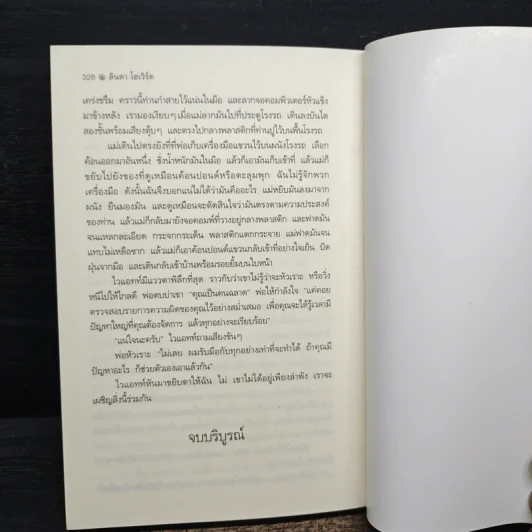 328 ❋ ลินดา โฮเวิร์ด
เคร่งขรึม คราวนี้ท่านกำสายไว้แน่นในมือ และลากจอคอมพิวเตอร์หัวแข็ง
มาข้างหลัง เรามองเงียบๆ เมื่อแม่ลากมันไปที่ประตูโรงรถ เดินลงบันได
สองขั้นพร้อมเสียงตุ้บๆ และตรงไปกลางพลาสติกที่ท่านปูไว้บนพื้นโรงรถ
แม่เดินไปตรงยังที่ที่พ่อเก็บเครื่องมือแขวนไว้บนผนังโรงรถ เลือก
ค้อนออกมาอันหนึ่ง ชั่งน้ำหนักมันในมือ แล้วก็เอามันเก็บเข้าที่ แล้วแม่ก็
ขยับไปยังของที่ดูเหมือนค้อนปอนด์หรือตะลุมพุก ฉันไม่รู้จักพวก
เครื่องมือ ดังนั้นฉันจึงบอกแน่ไม่ได้ว่ามันคืออะไร แม่หยิบมันลงมาจาก
ผนัง ยืนมองมัน และดูเหมือนจะตัดสินใจว่ามันตรงตามความประสงค์
ของท่าน แล้วแม่ก็กลับมายังจอคอมพ์ที่วางอยู่กลางพลาสติก และฟาดมัน
จนแหลกละเอียด กระจกกระเด็น พลาสติกแตกกระจาย แม่ฟาดมันจน
แทบไม่เหลือซาก แล้วแม่ก็เอาค้อนปอนด์แขวนกลับเข้าที่อย่างใจเย็น ปัด
ฝุ่นจากมือ และเดินกลับเข้าบ้านพร้อมรอยยิ้มบนใบหน้า
ไวแอทท์มีแววตาพิลึกที่สุด ราวกับว่าเขาไม่รู้ว่าจะหัวเราะ หรือวิ่ง
หนีไปให้ไกลดี พ่อตบบ่าเขา “คุณเป็นคนฉลาด” พ่อให้กำลังใจ “แค่คอย
ตรวจสอบรายการความผิดของคุณไว้อย่างสม่ำเสมอ เพื่อคุณจะได้รู้เวลามี
ปัญหาใหญ่ที่คุณต้องจัดการ แล้วทุกอย่างจะเรียบร้อย”
“แน่ใจนะครับ” ไวแอทท์ถามเสียงขันๆ
พ่อหัวเราะ “ไม่เลย ผมรับมือกับทุกอย่างเท่าที่จะทำได้ ถ้าคุณมี
ปัญหาอะไร ก็ช่วยตัวเองเอาแล้วกัน”
ไวแอทท์หันมาขยิบตาให้ฉัน ไม่ เขาไม่ได้อยู่เพียงลำพัง เราจะ
เผชิญสิ่งนี้ร่วมกัน
จบบริบูรณ์